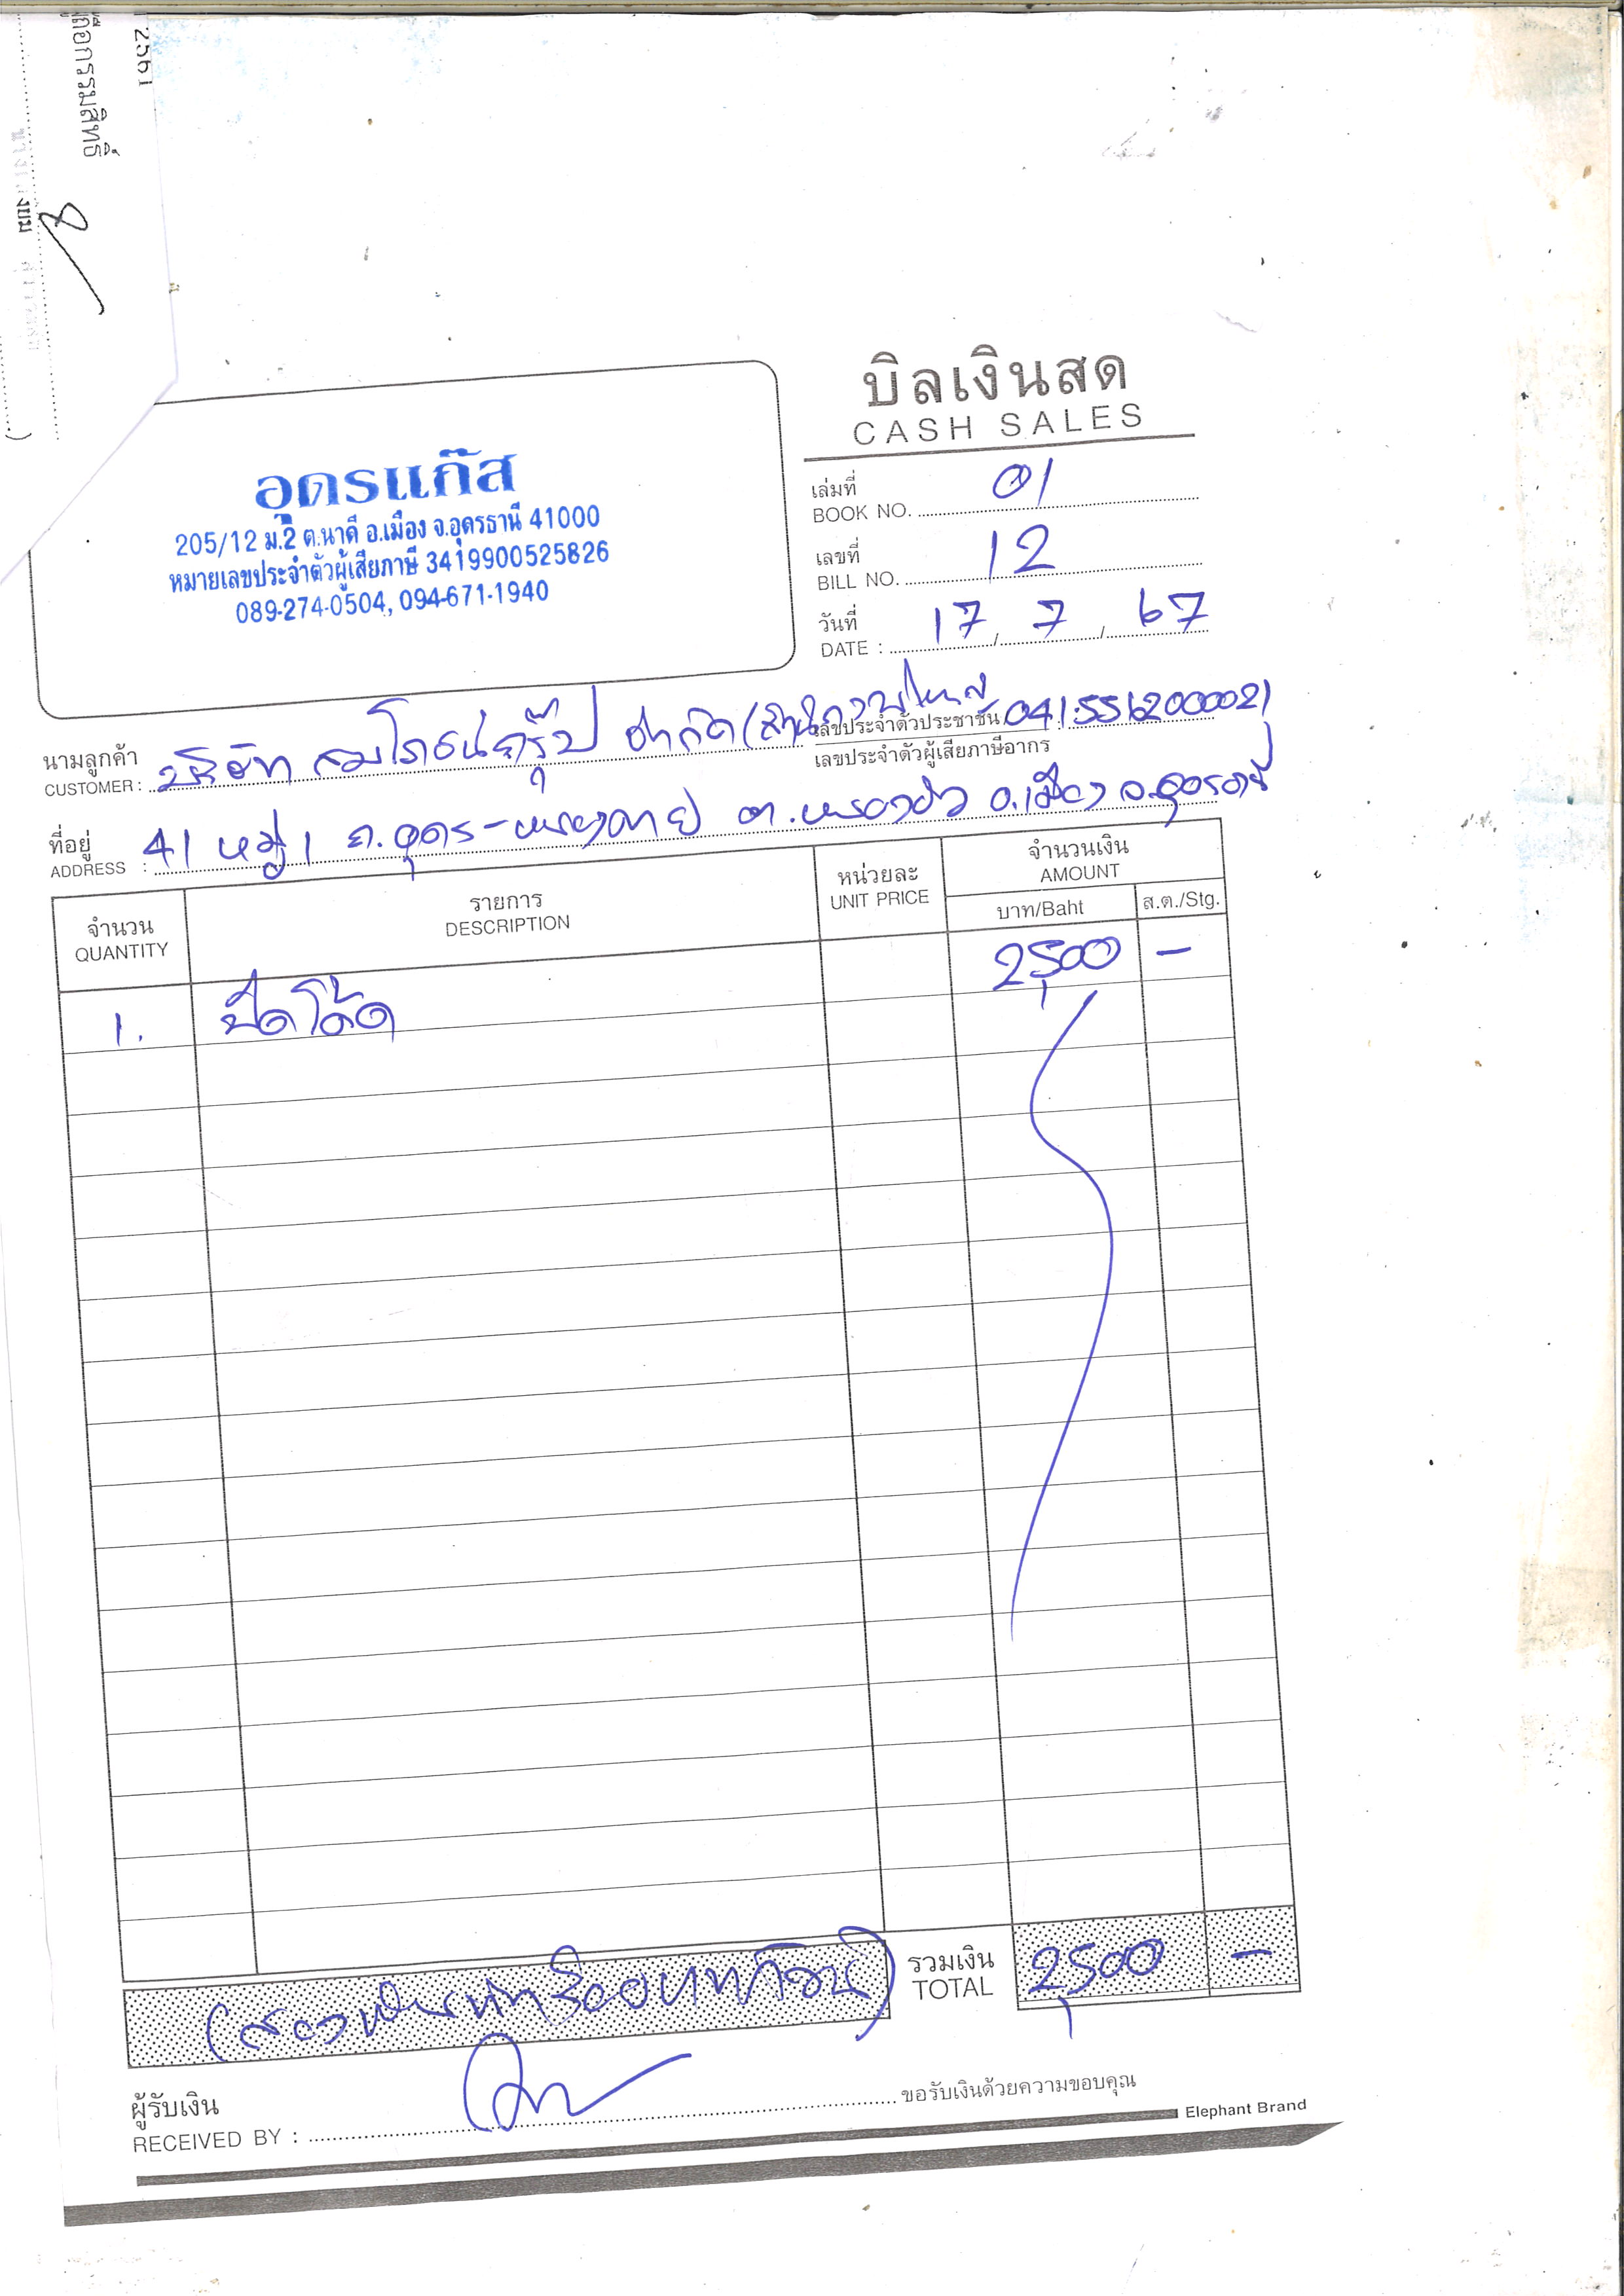 2561
บิลเงินสด
CASH SALES
อุดรแก๊ส
205/12 ม.2 ต.นาดี อ.เมือง จ.อุดรธานี 41000
หมายเลขประจำตัวผู้เสียภาษี 3419900525826
089-274-0504, 094-671-1940
เล่มที่
BOOK NO. 01
เลขที่
BILL NO. 12
วันที่
DATE : 17 / 7 / 67
นามลูกค้า
CUSTOMER : บริษัท สมโภชน์กรุ๊ป จำกัด (สำนักงานใหญ่
เลขประจำตัวประชาชน 0415562000021
เลขประจำตัวผู้เสียภาษีอากร
ที่อยู่
ADDRESS : 41 หมู่ 1 ถ.อุดร-หนองคาย ต.หมากแข้ง อ.เมือง จ.อุดรธานี
จำนวน
QUANTITY
รายการ
DESCRIPTION
หน่วยละ
UNIT PRICE
จำนวนเงิน
AMOUNT
บาท/Baht ส.ต./Stg.
1. 2,500 -
รวมเงิน
TOTAL 2,500 -
(สองพันห้าร้อยบาทถ้วน)
ผู้รับเงิน
RECEIVED BY : ขอรับเงินด้วยความขอบคุณ
Elephant Brand